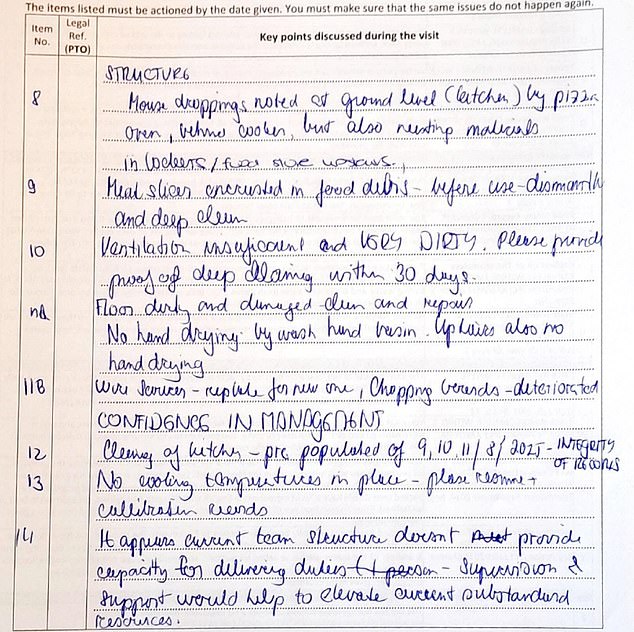 The items listed must be actioned by the date given. You must make sure that the same issues do not happen again.
Item No. Legal Ref. (PTO) Key points discussed during the visit
STRUCTURE
8 Mouse droppings noted at ground level (kitchen) by pizza
oven, behind cooker, but also nesting materials
in lockers/
9 Meat slicer encrusted in food debris - before use - dismantle
and deep clean
10 Ventilation insufficient and VERY DIRTY. Please provide
proof of deep cleaning within 30 days.
11A Floor dirty and damaged - clean and repair
No hand drying by wash hand basin. Upstairs also no
hand drying
11B Wire - replace for new one, Chopping boards - deteriorated
CONFIDENCE IN MANAGEMENT
12 Cleaning of kitchen - pre populated of 9, 10, 11/8/2025 - INTEGRITY
OF RECORDS
13 No cooling temperatures in place - please resume +
calibration records
14 It appears current team structure doesnt provide
capacity for delivering duties (1 person - Supervision &
support would help to elevate current substandard
resources.